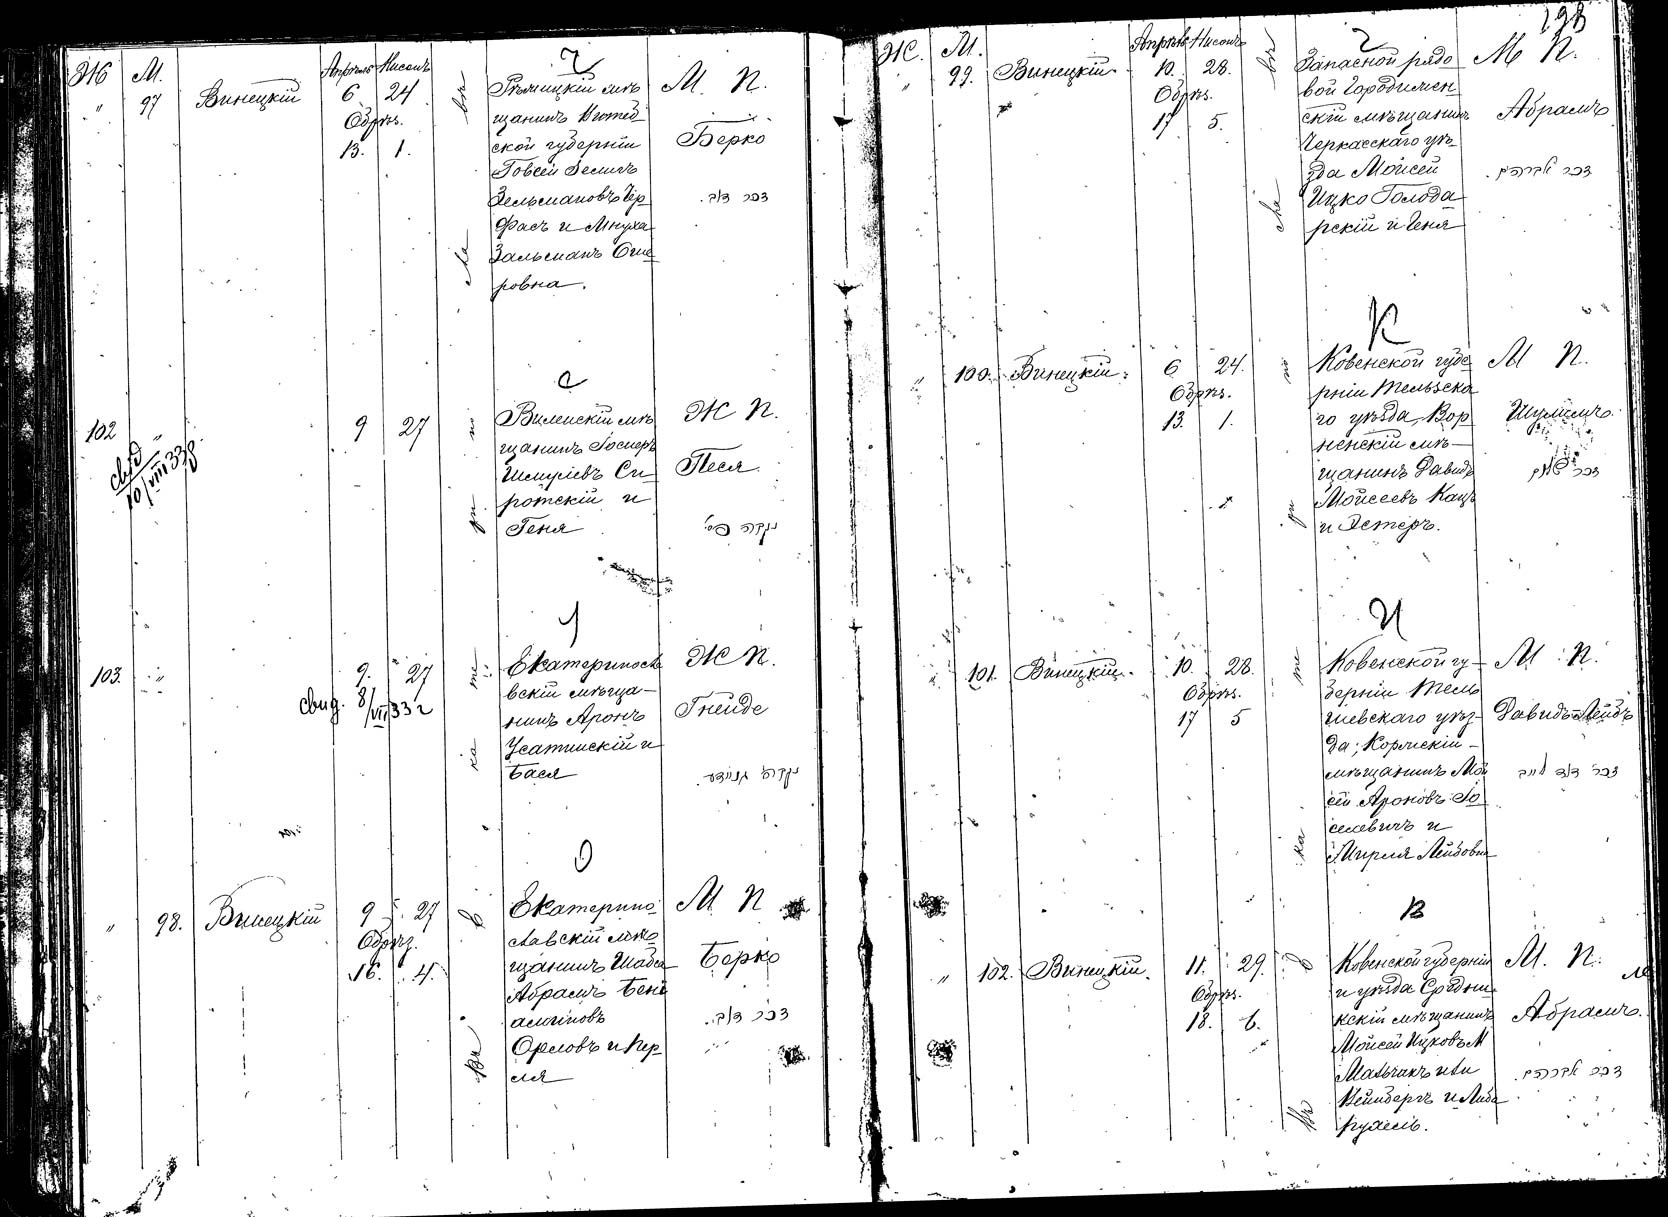 Ж М. Апрѣль Нисонъ М. П.
" 97 Винецкій 6 24
Обрѣз.
13. 1.
щанинъ
ской губерніи
Зельмановъ Гер
фасъ и Мнуха
Зальманъ Оше
ровна.
Берко
זכר דוב.
С
102 " 9 27 Ж П.
свид
10/VIII 33 г
Виленскій мѣ
щанинъ Іосперъ
Шмуіевъ Си
ротскій и
Геня
Песя
נקבה פסי
103. " 9. 27 Ж П.
свид. 8/VII 33 г
Екатеринославскій мѣща-
нинъ Аронъ
Усатинскій и
Бася
Гнейде
נקבה גניידע
О
" 98. Винецкій 9 27 М П
Обрѣз.
16. 4.
Екатерино
славскій мѣ
щанинъ Шабса
Абрамъ Бені
аминовъ
Орловъ и Пер
ля
Берко
זכר דוב.
198
Ж. М. Апрѣль Нисонъ М П.
" 99. Винецкій 10. 28.
Обрѣз.
17 5.
Запасной рядо
вой Городищен
скій мѣщанинъ
Черкасскаго уѣ-
зда Мойсей
Ицко Голода
рскій и Геня
Абрамъ
זכר אברהם.
К
" 100. Винецкій 6 24. М П.
Обрѣз.
13. 1.
Ковенской губе
рніи Тельшска
го уѣзда, Вор
ненскій мѣ-
щанинъ Давидъ
Мойсеевъ Кацъ
и Эстеръ.
Шулимъ.
זכר שלום
И
" 101. Винецкій. 10. 28. М П.
Обрѣз.
17 5
Ковенской гу-
берніи Тель
шевскаго уѣз-
да,
мѣщанинъ Мой
сей Ароновъ Іо
селевичъ и
Миреля Лейбовна
Давидъ-Лейбъ
זכר דוד לייב
В
" 102. Винецкій. 11. 29. М. П.
Обрѣз.
18. 6.
Ковенской губерніи
и уѣзда Средни
кскій мѣщанинъ
Мойсей Ицковъ М
Вейнбергъ и Либа
Рухель.
Абрамъ.
זכר אברהם.